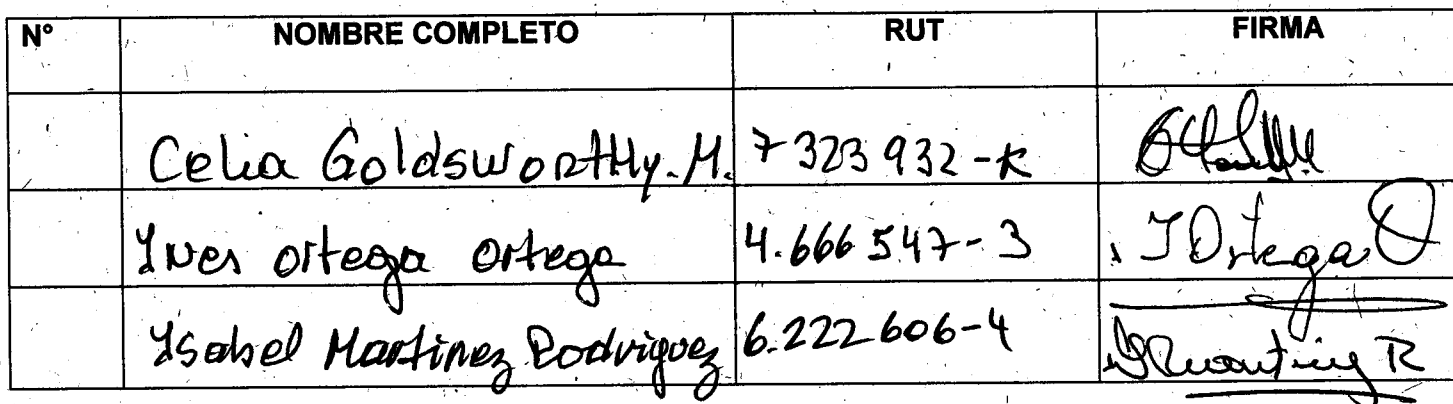 N° NOMBRE COMPLETO RUT FIRMA
Celia Goldsworthy.M. 7323932-K
Ines ortega ortega 4.666547-3 I Ortega O
Isabel Martinez Rodriguez 6.222606-4